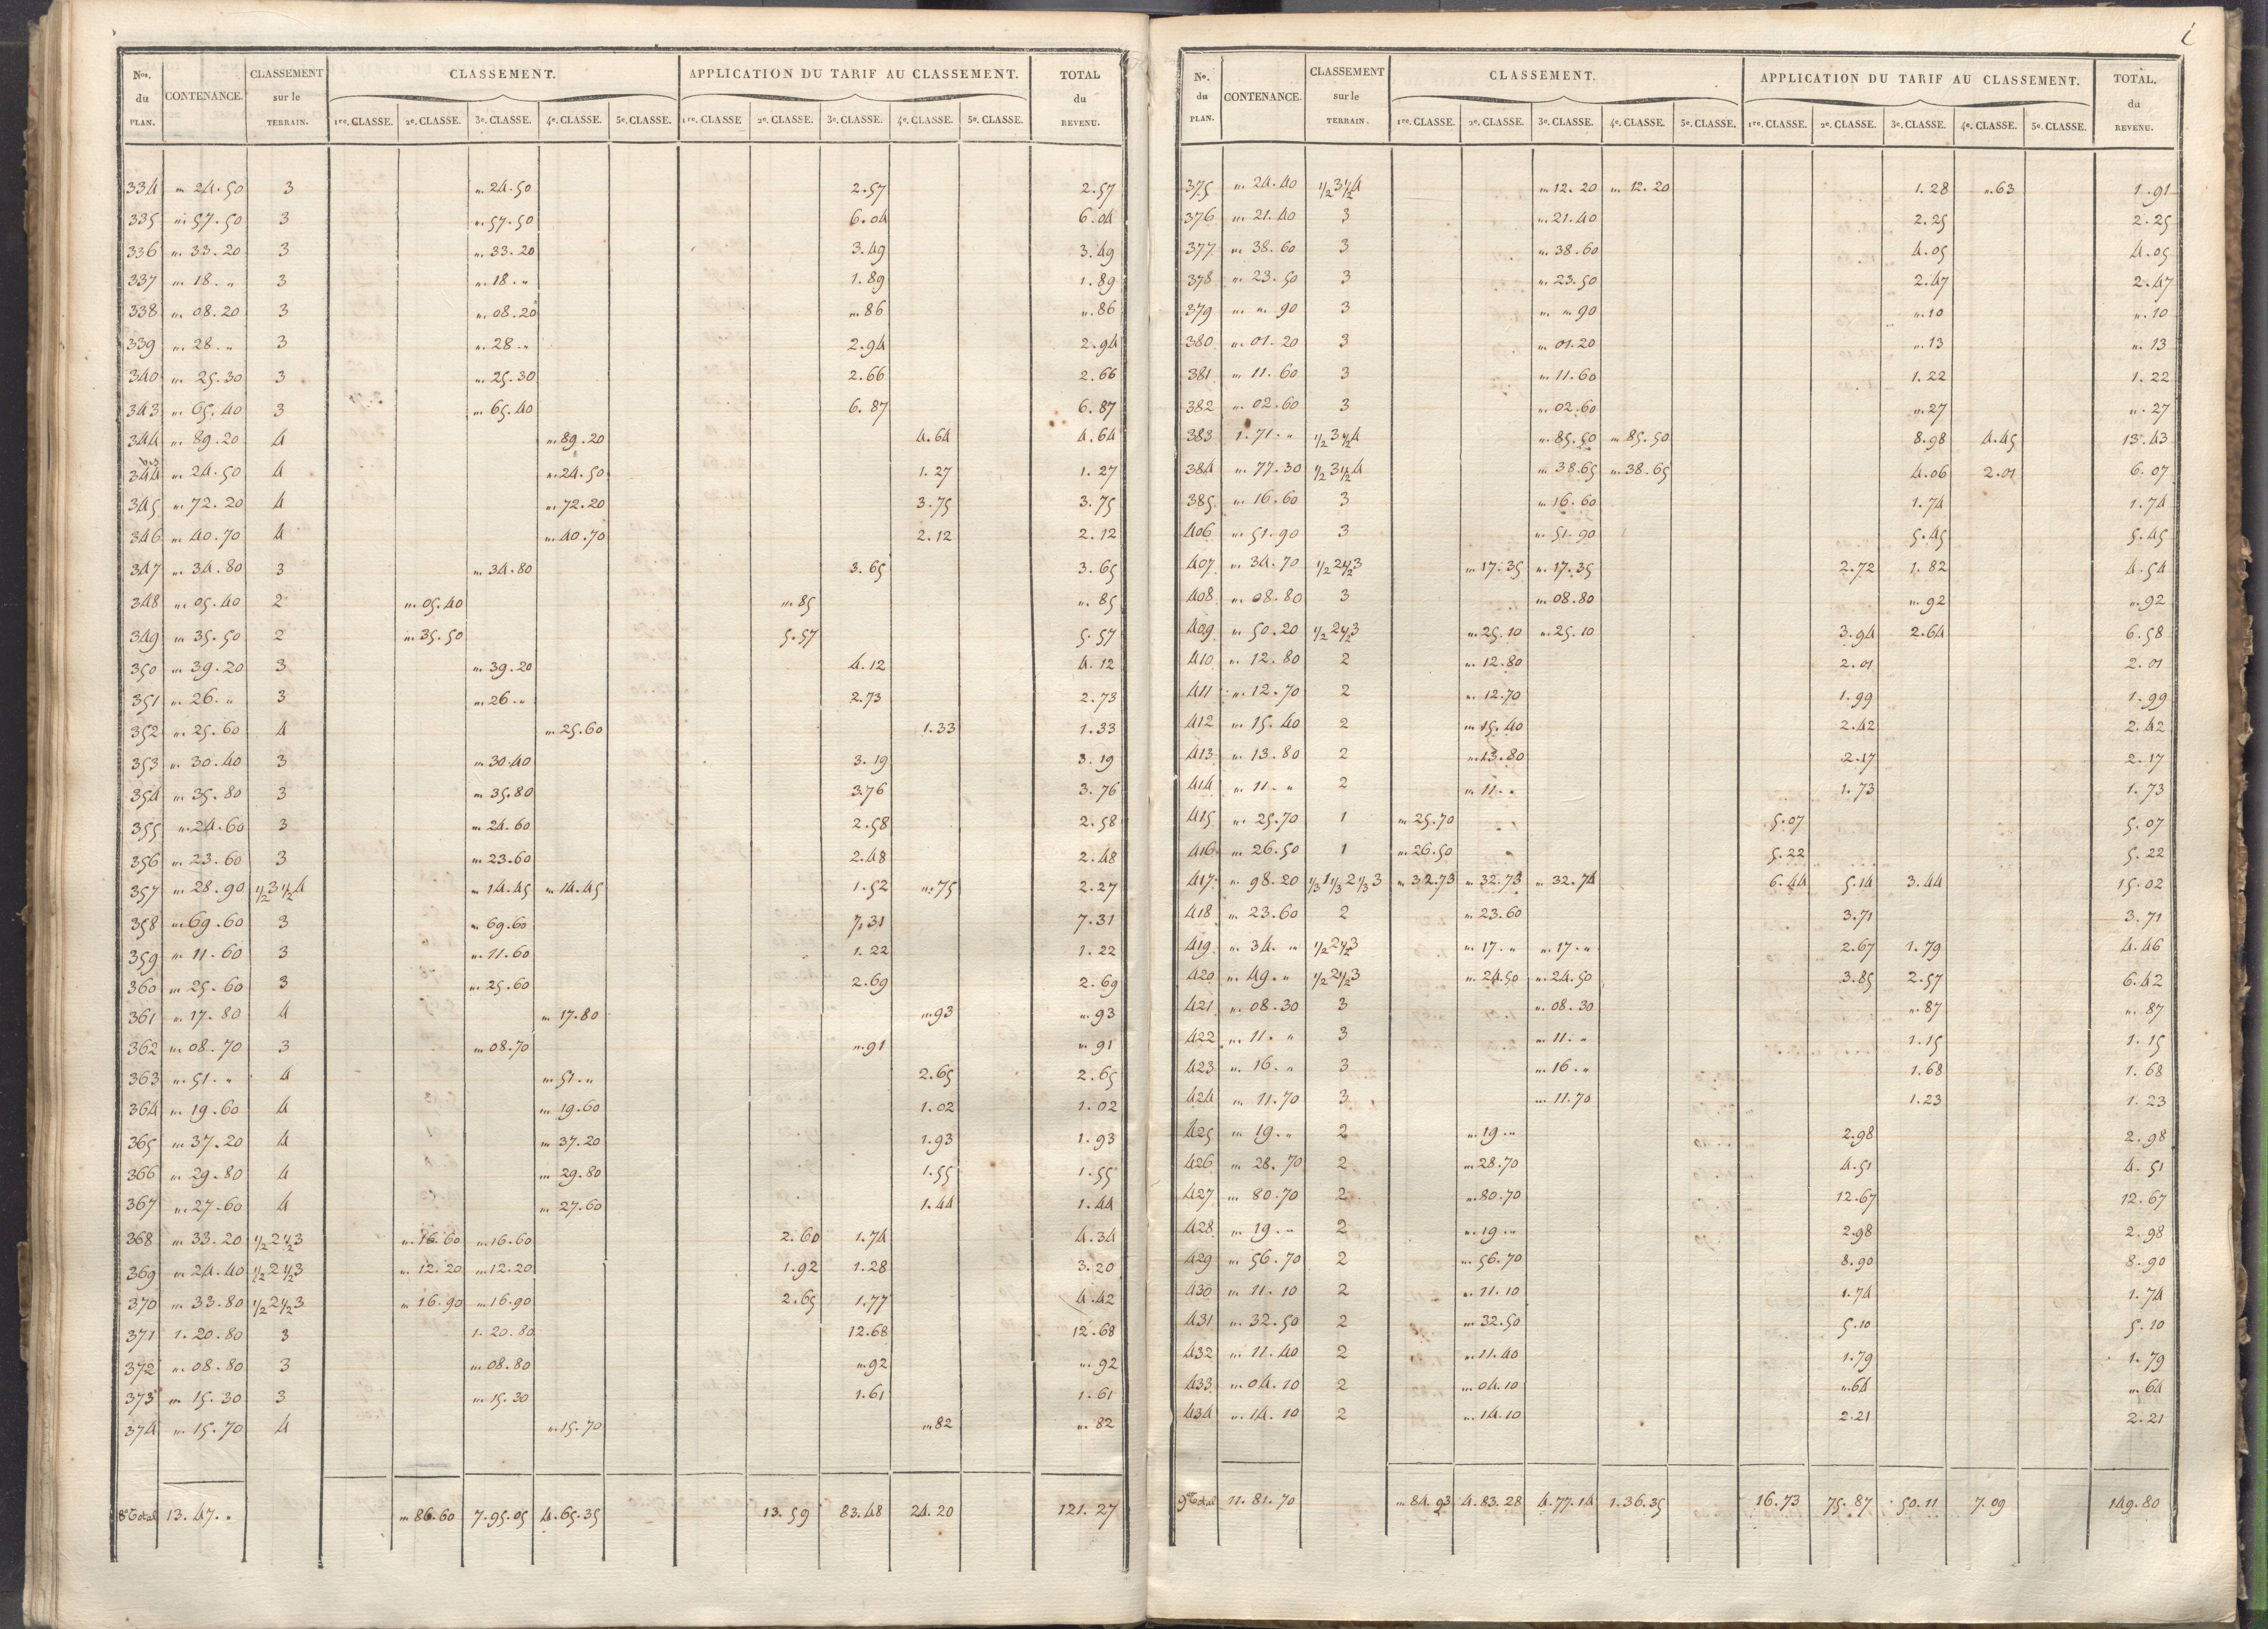 Nos. du PLAN. CONTENANCE. CLASSEMENT sur le TERRAIN. CLASSEMENT. APPLICATION DU TARIF AU CLASSEMENT. TOTAL du REVENU.
1re. CLASSE. 2e. CLASSE. 3e. CLASSE. 4e. CLASSE. 5e. CLASSE. 1re. CLASSE 2e. CLASSE. 3e. CLASSE. 4e. CLASSE. 5e. CLASSE.
334 " 24.50 3 " 24.50 2.57 2.57
335 " 57.50 3 " 57.50 6.04 6.04
336 " 33.20 3 " 33.20 3.49 3.49
337 " 18. " 3 " 18. " 1.89 1.89
338 " 08.20 3 " 08.20 " 86 ". 86
339 " 28. " 3 " 28. " 2.94 2.94
340 " 25.30 3 " 25.30 2.66 2.66
343 " 65.40 3 " 65.40 6.87 6.87
344 " 89.20 4 " 89.20 4.64 4.64
344 bis " 24.50 4 " 24.50 1.27 1.27
345 " 72.20 4 " 72.20 3.75 3.75
346 " 40.70 4 " 40.70 2.12 2.12
347 " 34.80 3 " 34.80 3.65 3.65
348 " 05.40 2 " 05.40 " 85 ". 85
349 " 35.50 2 " 35.50 5.57 5.57
350 " 39.20 3 " 39.20 4.12 4.12
351 " 26. " 3 " 26. " 2.73 2.73
352 " 25.60 4 " 25.60 1.33 1.33
353 " 30.40 3 " 30.40 3.19 3.19
354 " 35.80 3 " 35.80 3.76 3.76
355 " 24.60 3 " 24.60 2.58 2.58
356 " 23.60 3 " 23.60 2.48 2.48
357 " 28.90 1/2 3 1/2 4 " 14.45 " 14.45 1.52 ". 75 2.27
358 " 69.60 3 " 69.60 7.31 7.31
359 " 11.60 3 " 11.60 1.22 1.22
360 " 25.60 3 " 25.60 2.69 2.69
361 " 17.80 4 " 17.80 " 93 ". 93
362 " 08.70 3 " 08.70 " 91 " 91
363 " 51. " 4 " 51. " 2.65 2.65
364 " 19.60 4 " 19.60 1.02 1.02
365 " 37.20 4 " 37.20 1.93 1.93
366 " 29.80 4 " 29.80 1.55 1.55
367 " 27.60 4 " 27.60 1.44 1.44
368 " 33.20 1/2 2 1/2 3 " 16.60 " 16.60 2.60 1.74 4.34
369 " 24.40 1/2 2 1/2 3 " 12.20 " 12.20 1.92 1.28 3.20
370 " 33.80 1/2 2 1/2 3 " 16.90 " 16.90 2.65 1.77 4.42
371 1.20.80 3 1.20.80 12.68 12.68
372 " 08.80 3 " 08.80 " 92 ". 92
373 " 15.30 3 " 15.30 1.61 1.61
374 " 15.70 4 " 15.70 " 82 ". 82
8e Total 13.47. " " 86.60 7.95.05 4.65.35 13.59 83.48 24.20 121.27
No. du PLAN. CONTENANCE. CLASSEMENT sur le TERRAIN. CLASSEMENT. APPLICATION DU TARIF AU CLASSEMENT. TOTAL. du REVENU.
1re. CLASSE. 2e. CLASSE. 3e. CLASSE. 4e. CLASSE. 5e. CLASSE. 1re. CLASSE. 2e. CLASSE. 3e. CLASSE. 4e. CLASSE. 5e. CLASSE.
375 " 24.40 1/2 3 1/2 4 " 12.20 " 12.20 1.28 ". 63 1.91
376 " 21.40 3 " 21.40 2.25 2.25
377 " 38.60 3 " 38.60 4.05 4.05
378 " 23.50 3 " 23.50 2.47 2.47
379 " " 90 3 " " 90 ". 10 ". 10
380 " 01.20 3 " 01.20 ". 13 ". 13
381 " 11.60 3 " 11.60 1.22 1.22
382 " 02.60 3 " 02.60 ". 27 ". 27
383 1.71. " 1/2 3 1/2 4 " 85.50 " 85.50 8.98 4.45 13.43
384 " 77.30 1/2 3 1/2 4 " 38.65 " 38.65 4.06 2.01 6.07
385 " 16.60 3 " 16.60 1.74 1.74
406 " 51.90 3 " 51.90 5.45 5.45
407 " 34.70 1/2 2 1/2 3 " 17.35 " 17.35 2.72 1.82 4.54
408 " 08.80 3 " 08.80 ". 92 ". 92
409 " 50.20 1/2 2 1/2 3 " 25.10 " 25.10 3.94 2.64 6.58
410 " 12.80 2 " 12.80 2.01 2.01
411 " 12.70 2 " 12.70 1.99 1.99
412 " 15.40 2 " 15.40 2.42 2.42
413 " 13.80 2 " 13.80 2.17 2.17
414 " 11. " 2 " 11. " 1.73 1.73
415 " 25.70 1 " 25.70 5.07 5.07
416 " 26.50 1 " 26.50 5.22 5.22
417 " 98.20 1/3 1 1/3 2 1/3 3 " 32.73 " 32.73 " 32.74 6.44 5.14 3.44 15.02
418 " 23.60 2 " 23.60 3.71 3.71
419 " 34. " 1/2 2 1/2 3 " 17. " " 17. " 2.67 1.79 4.46
420 " 49. " 1/2 2 1/2 3 " 24.50 " 24.50 3.85 2.57 6.42
421 " 08.30 3 " 08.30 ". 87 ". 87
422 " 11. " 3 " 11. " 1.15 1.15
423 " 16. " 3 " 16. " 1.68 1.68
424 " 11.70 3 " 11.70 1.23 1.23
425 " 19. " 2 " 19. " 2.98 2.98
426 " 28.70 2 " 28.70 4.51 4.51
427 " 80.70 2 " 80.70 12.67 12.67
428 " 19. " 2 " 19. " 2.98 2.98
429 " 56.70 2 " 56.70 8.90 8.90
430 " 11.10 2 " 11.10 1.74 1.74
431 " 32.50 2 " 32.50 5.10 5.10
432 " 11.40 2 " 11.40 1.79 1.79
433 " 04.10 2 " 04.10 ". 64 ". 64
434 " 14.10 2 " 14.10 2.21 2.21
9e Total 11.81.70 " 84.93 4.83.28 4.77.14 1.36.35 16.73 75.87 50.11 7.09 149.80